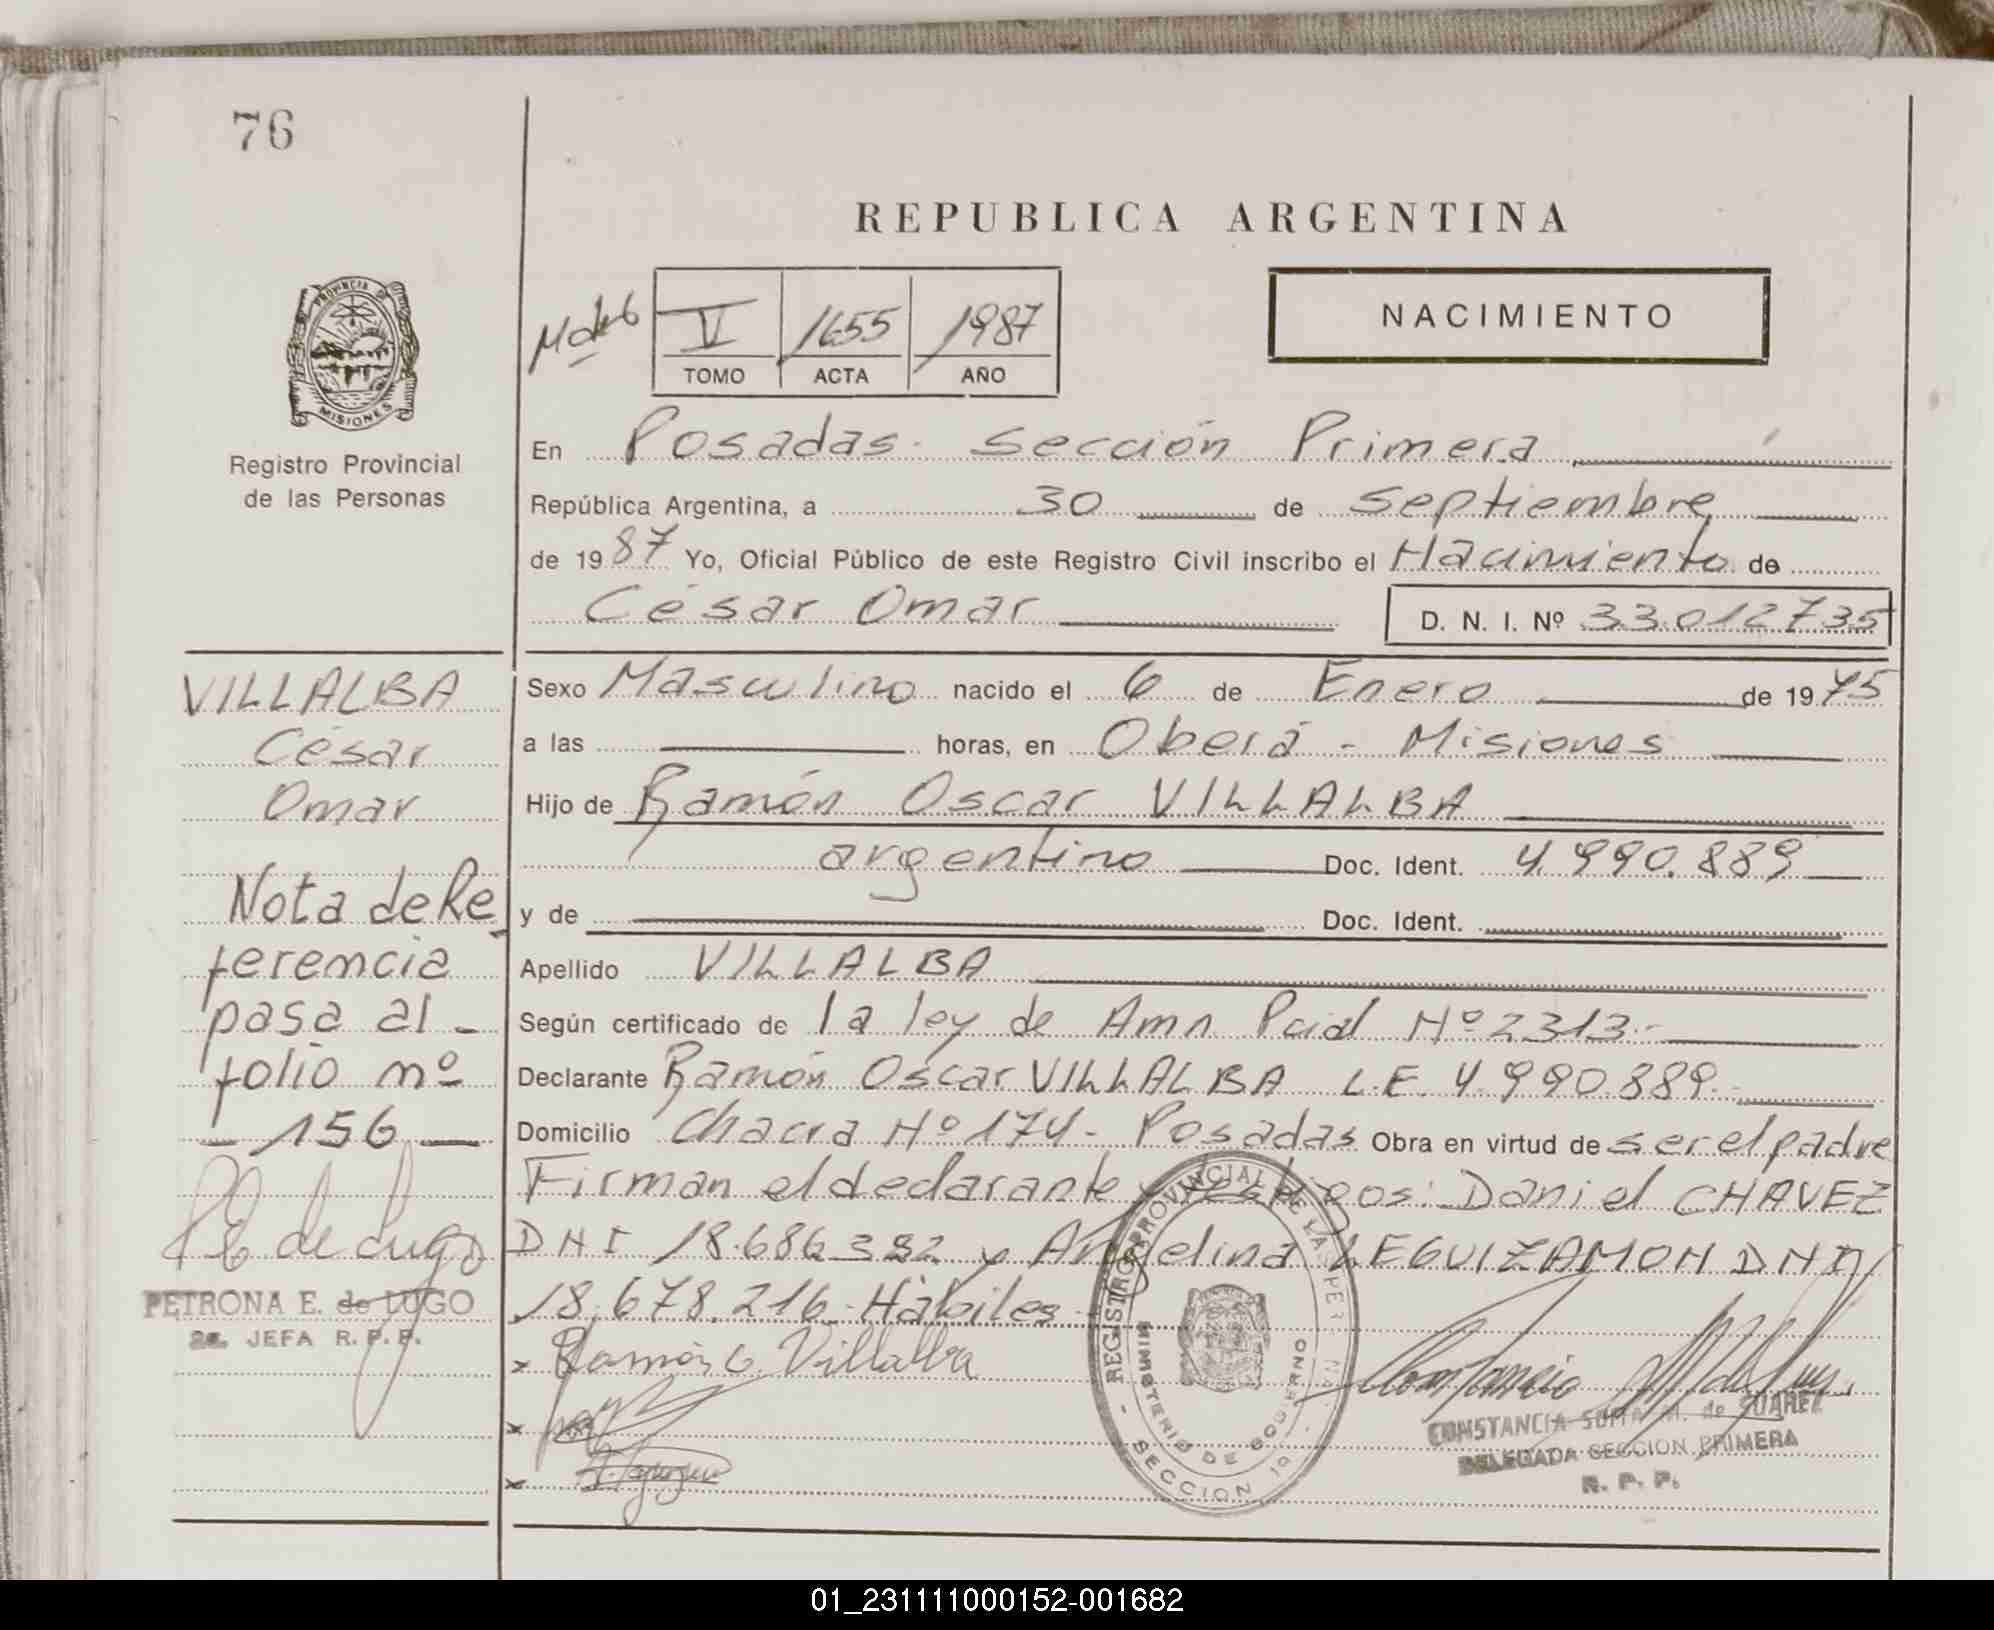 76
REPUBLICA ARGENTINA
PROVINCIA DE
MISIONES
Registro Provincial
de las Personas
V 1655 1987
TOMO ACTA AÑO
NACIMIENTO
En Posadas. Sección Primera
República Argentina, a 30 de Septiembre
de 1987 Yo, Oficial Público de este Registro Civil inscribo el Nacimiento de
César Omar
D. N. I. Nº 33.012735
VILLALBA
César
Omar
Nota de Re
ferencia
pasa al -
folio nº
- 156 -
PETRONA E. de LUGO
2a. JEFA R. P. P.
Sexo Masculino nacido el 6 de Enero de 1975
a las horas, en Oberá - Misiones
Hijo de Ramón Oscar VILLALBA
argentino Doc. Ident. 4.990.889
y de Doc. Ident.
Apellido VILLALBA
Según certificado de la ley de Amn Pcial Nº 2313.-
Declarante Ramón Oscar VILLALBA L.E. 4.990.889.-
Domicilio Chacra Nº 174 - Posadas Obra en virtud de ser el padre
Firman el declarante y testigos: Daniel CHAVEZ
DNI 18.686.392 y Angelina LEGUIZAMON DNI
18.678.216 - Hábiles -
x Ramón O. Villalba
x
x
REGISTRO PROVINCIAL DE LAS PER
MINISTERIO DE GOBIERNO
SECCION 1ª
CONSTANCIA M. de SUAREZ
DELEGADA SECCION PRIMERA
R. P. P.
01_231111000152-001682